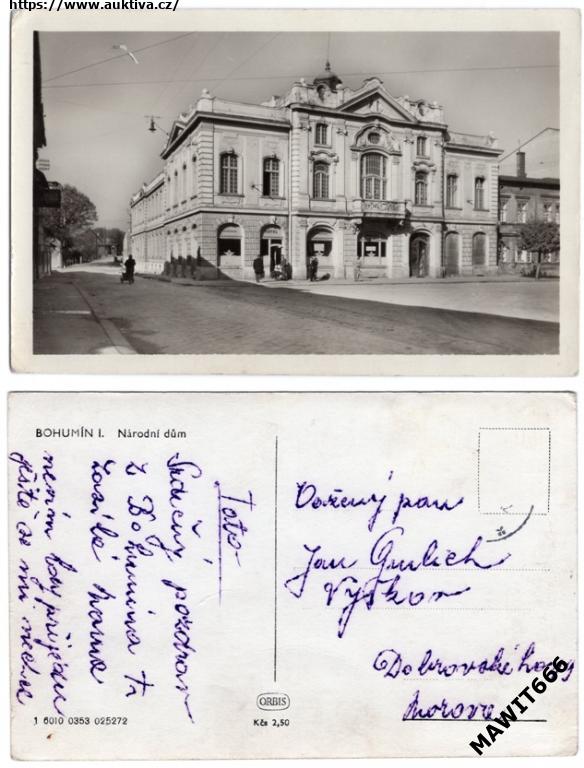 https://www.auktiva.cz/
BOHUMÍN I. Národní dům
Tato
Srdečný pozdrav
z Bohumína ti
zasílá
nevím kdy přijedu
ještě
Vážený pan
Jan Grulich
Vyškov
Dobrovského
Morava
ORBIS
Kčs 2,50
1 6010 0353 025272
MAWIT666